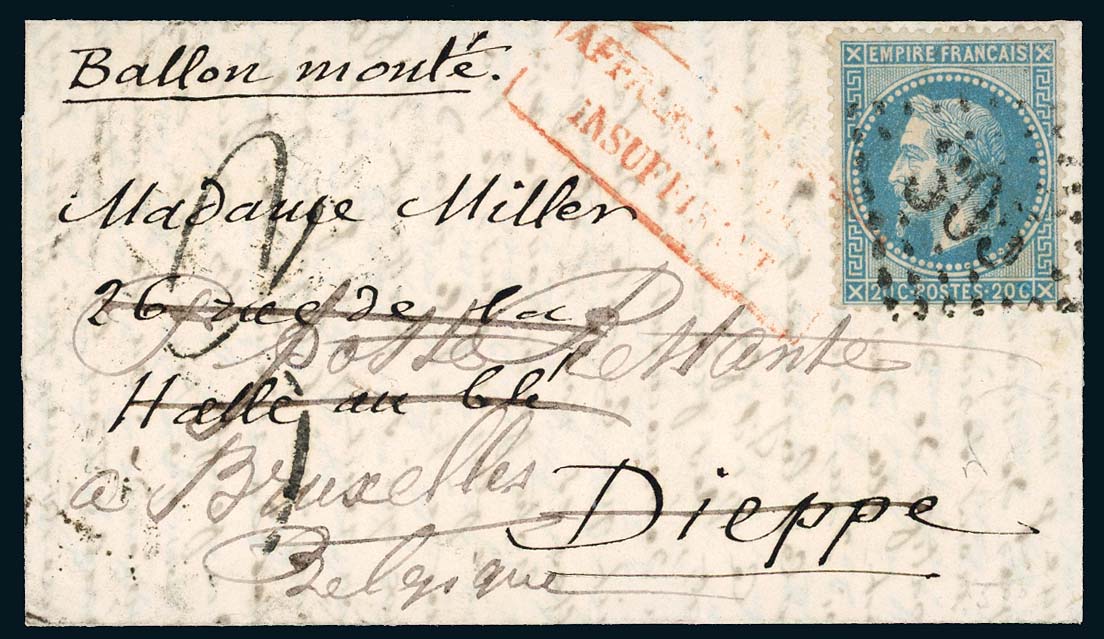 Ballon monté.
AFFR
INSUFFISANT
EMPIRE FRANÇAIS
20C·POSTES·20C
Madame Miller
26 rue de la
Poste Restante
Halle au blé
à Bruxelles
Dieppe
Belgique